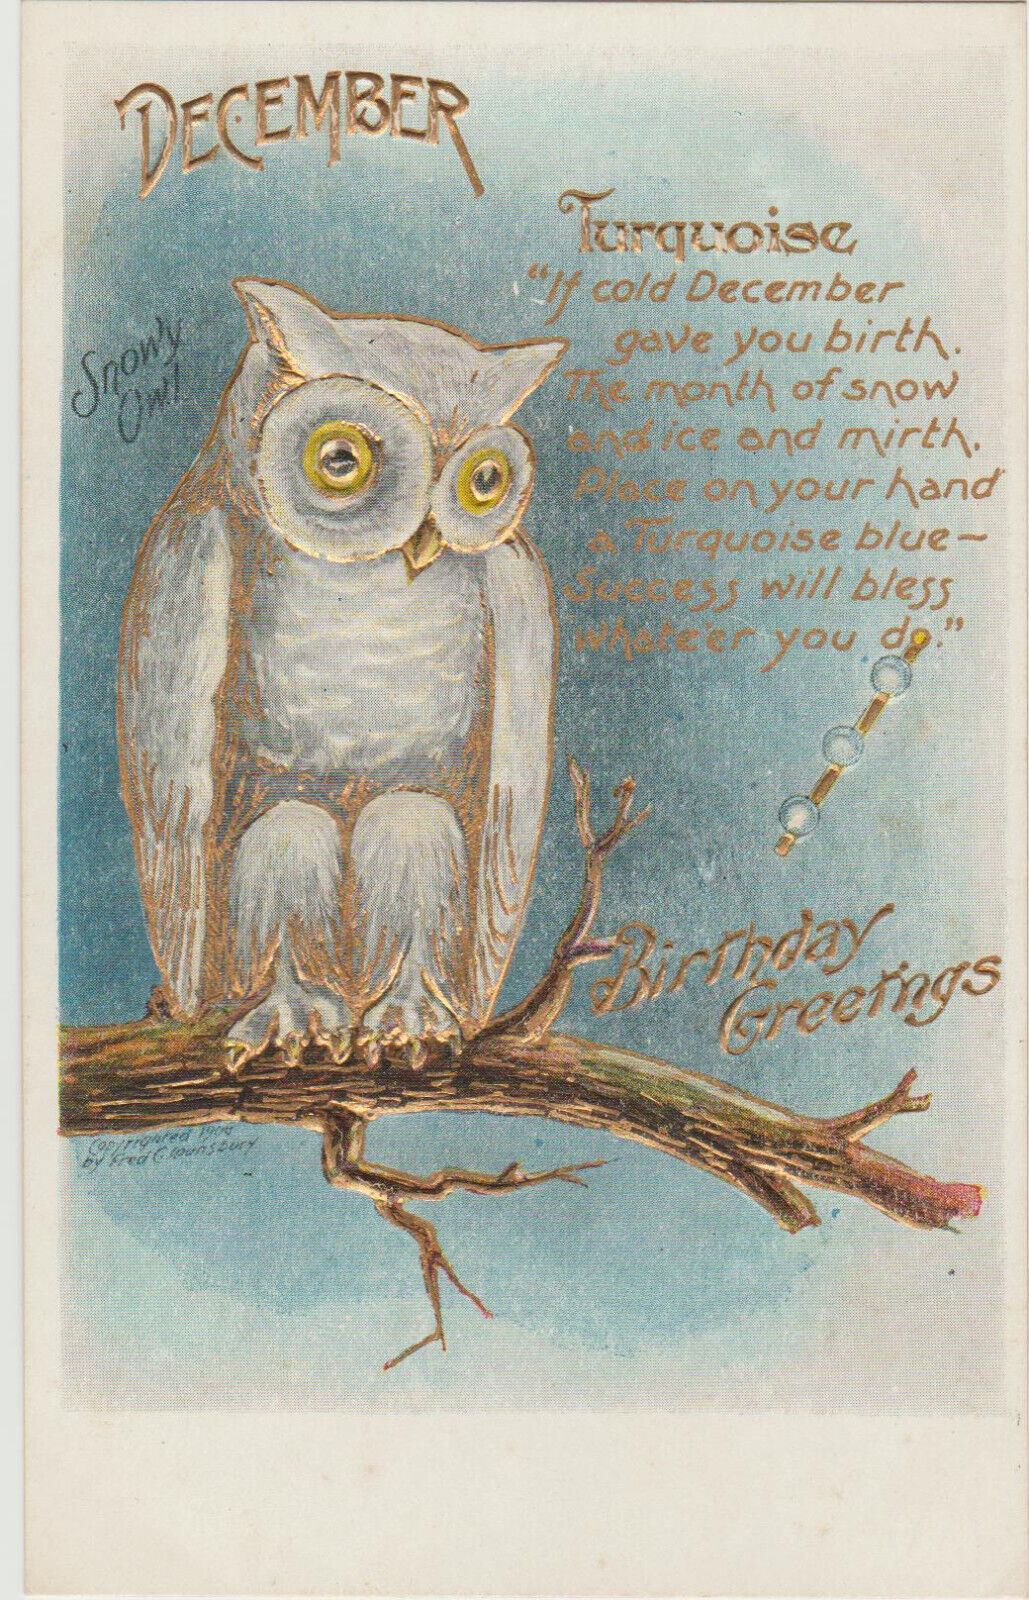 DECEMBER
Turquoise
"If cold December
gave you birth.
The month of snow
and ice and mirth.
Place on your hand
a Turquoise blue~
Success will bless
whate'er you do."
Snowy
Owl
Birthday
Greetings
Copyrighted
by Fred C Lounsbury